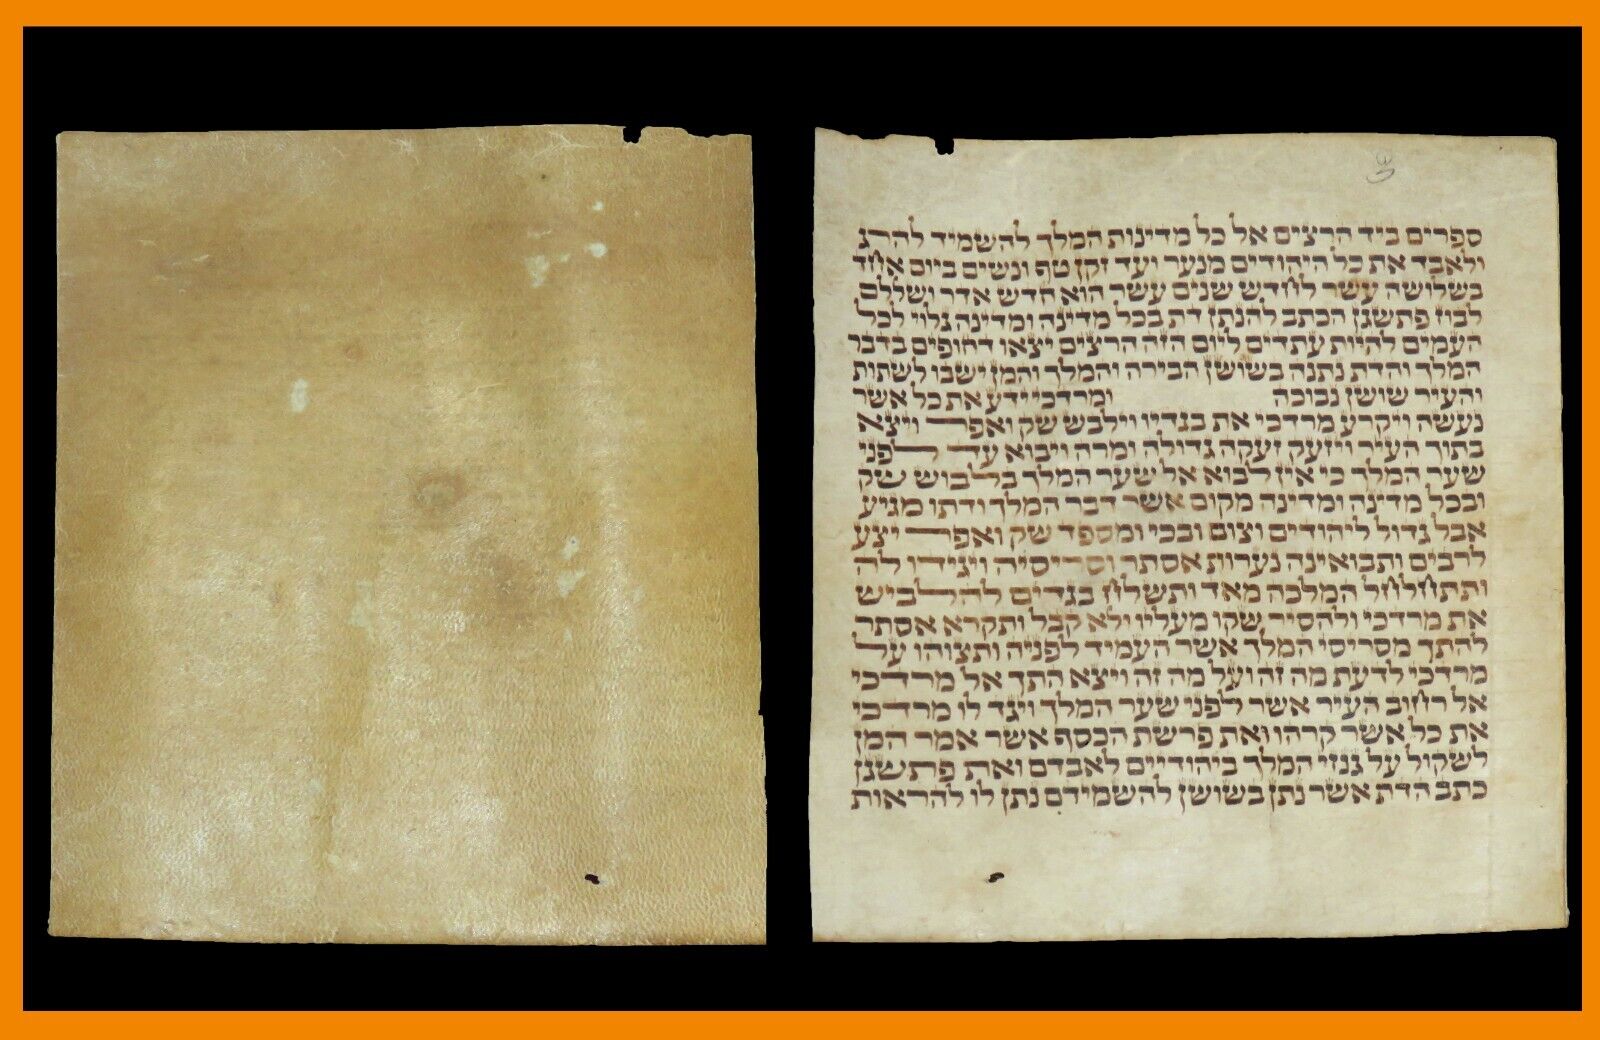 ספרים ביד הרצים אל כל מדינות המלך להשמיד להרג
ולאבד את כל היהודים מנער ועד זקן טף ונשים ביום אחד
בשלושה עשר לחדש שנים עשר הוא חדש אדר ושללם
לבוז פתשגן הכתב להנתן דת בכל מדינה ומדינה גלוי לכל
העמים להיות עתדים ליום הזה הרצים יצאו דחופים בדבר
המלך והדת נתנה בשושן הבירה והמלך והמן ישבו לשתות
והעיר שושן נבוכה ומרדכי ידע את כל אשר
נעשה ויקרע מרדכי את בגדיו וילבש שק ואפר ויצא
בתוך העיר ויזעק זעקה גדולה ומרה ויבוא עד לפני
שער המלך כי אין לבוא אל שער המלך בלבוש שק
ובכל מדינה ומדינה מקום אשר דבר המלך ודתו מגיע
אבל גדול ליהודים וצום ובכי ומספד שק ואפר יצע
לרבים ותבואינה נערות אסתר וסריסיה ויגידו לה
ותתחלחל המלכה מאד ותשלח בגדים להלביש
את מרדכי ולהסיר שקו מעליו ולא קבל ותקרא אסתר
להתך מסריסי המלך אשר העמיד לפניה ותצוהו על
מרדכי לדעת מה זה ועל מה זה ויצא התך אל מרדכי
אל רחוב העיר אשר לפני שער המלך ויגד לו מרדכי
את כל אשר קרהו ואת פרשת הכסף אשר אמר המן
לשקול על גנזי המלך ביהודיים לאבדם ואת פתשגן
כתב הדת אשר נתן בשושן להשמידם נתן לו להראות